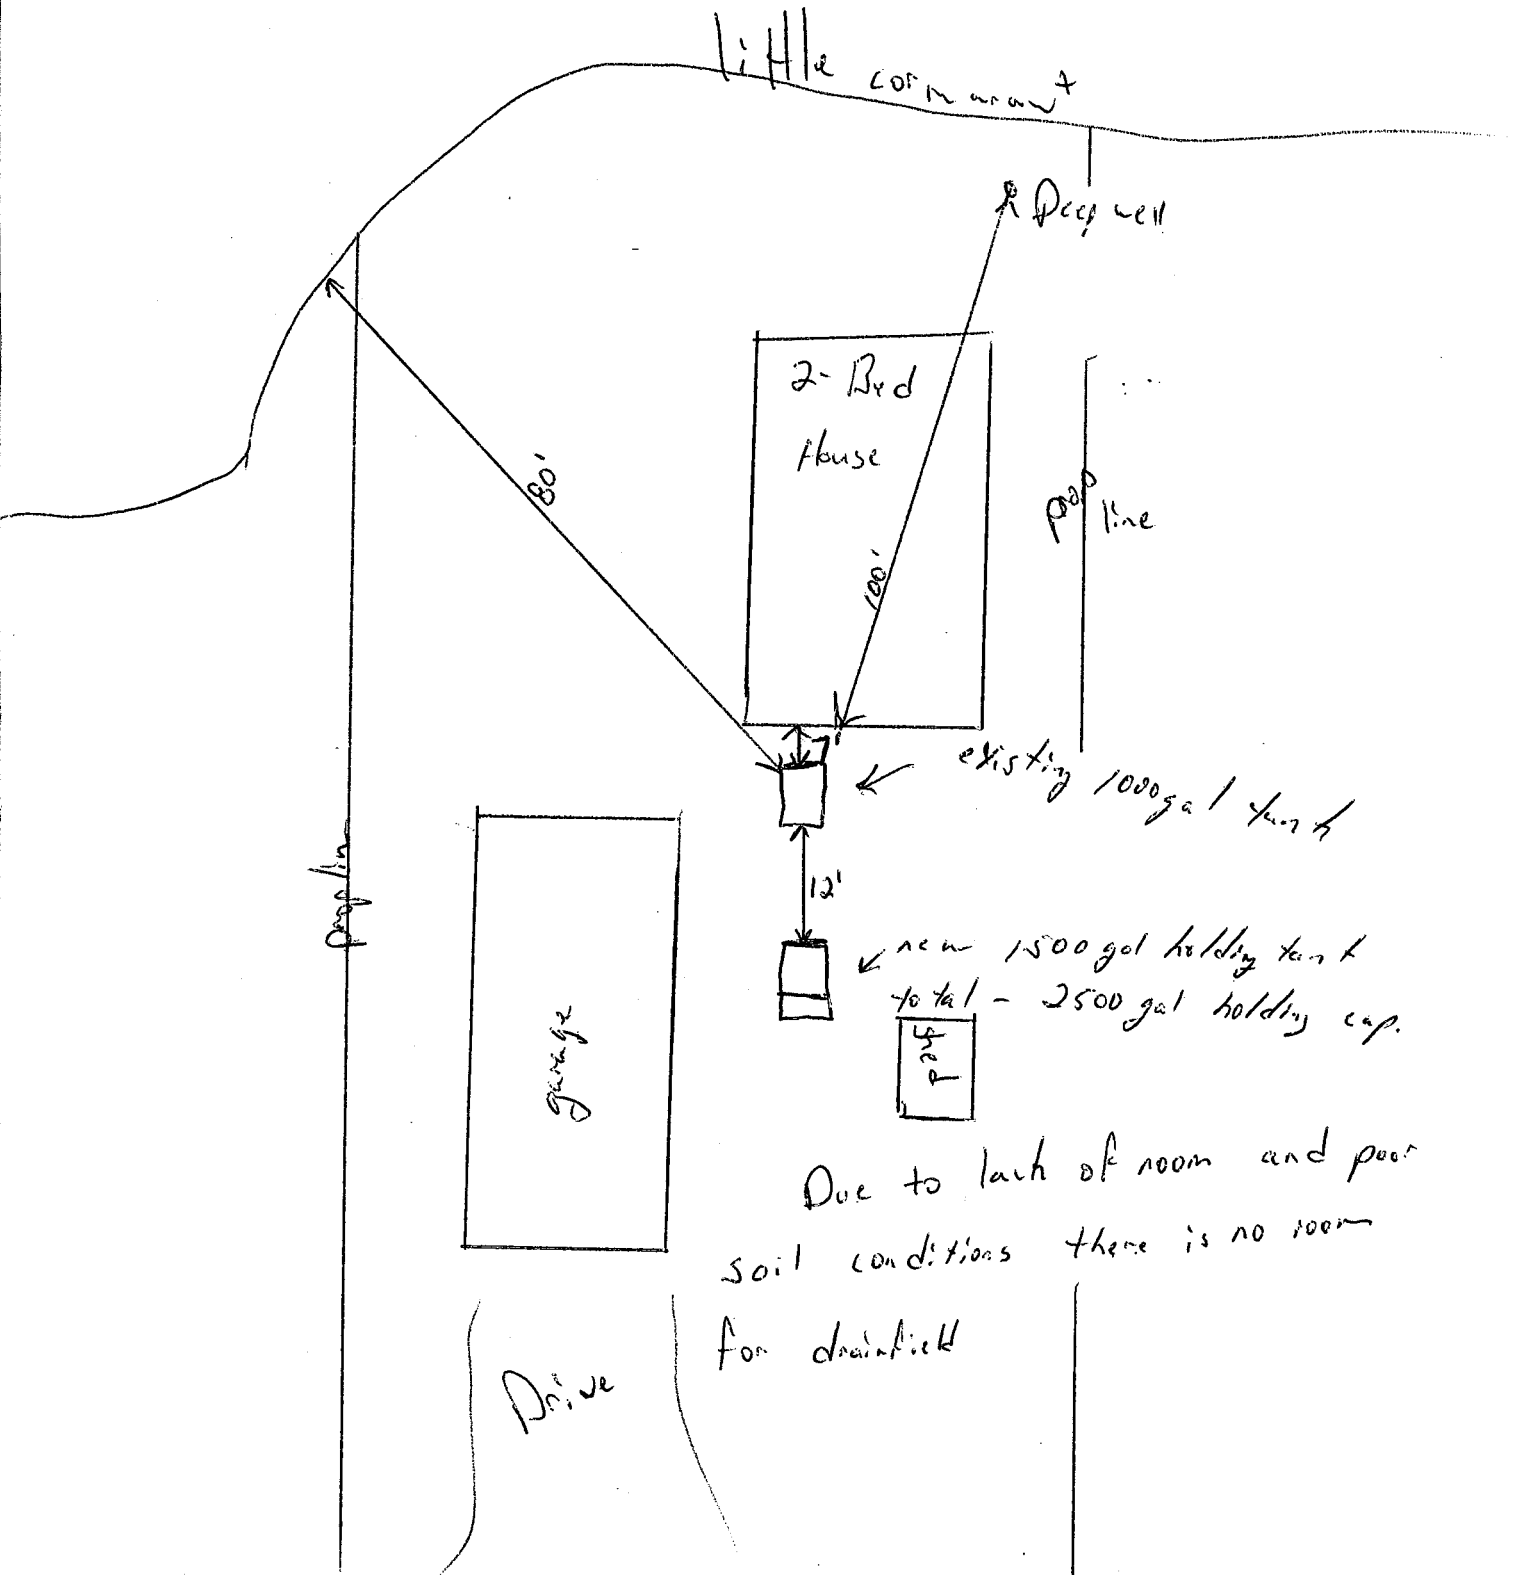 little cormarawt
Deep well
2-Bed
House
80'
100'
prop
line
7'
existing 1000 gal tank
prop lin
12'
new 1500 gal holding tank
total - 2500 gal holding cap.
shed
garage
Due to lack of room and poor
soil conditions there is no room
for drainfield
Drive